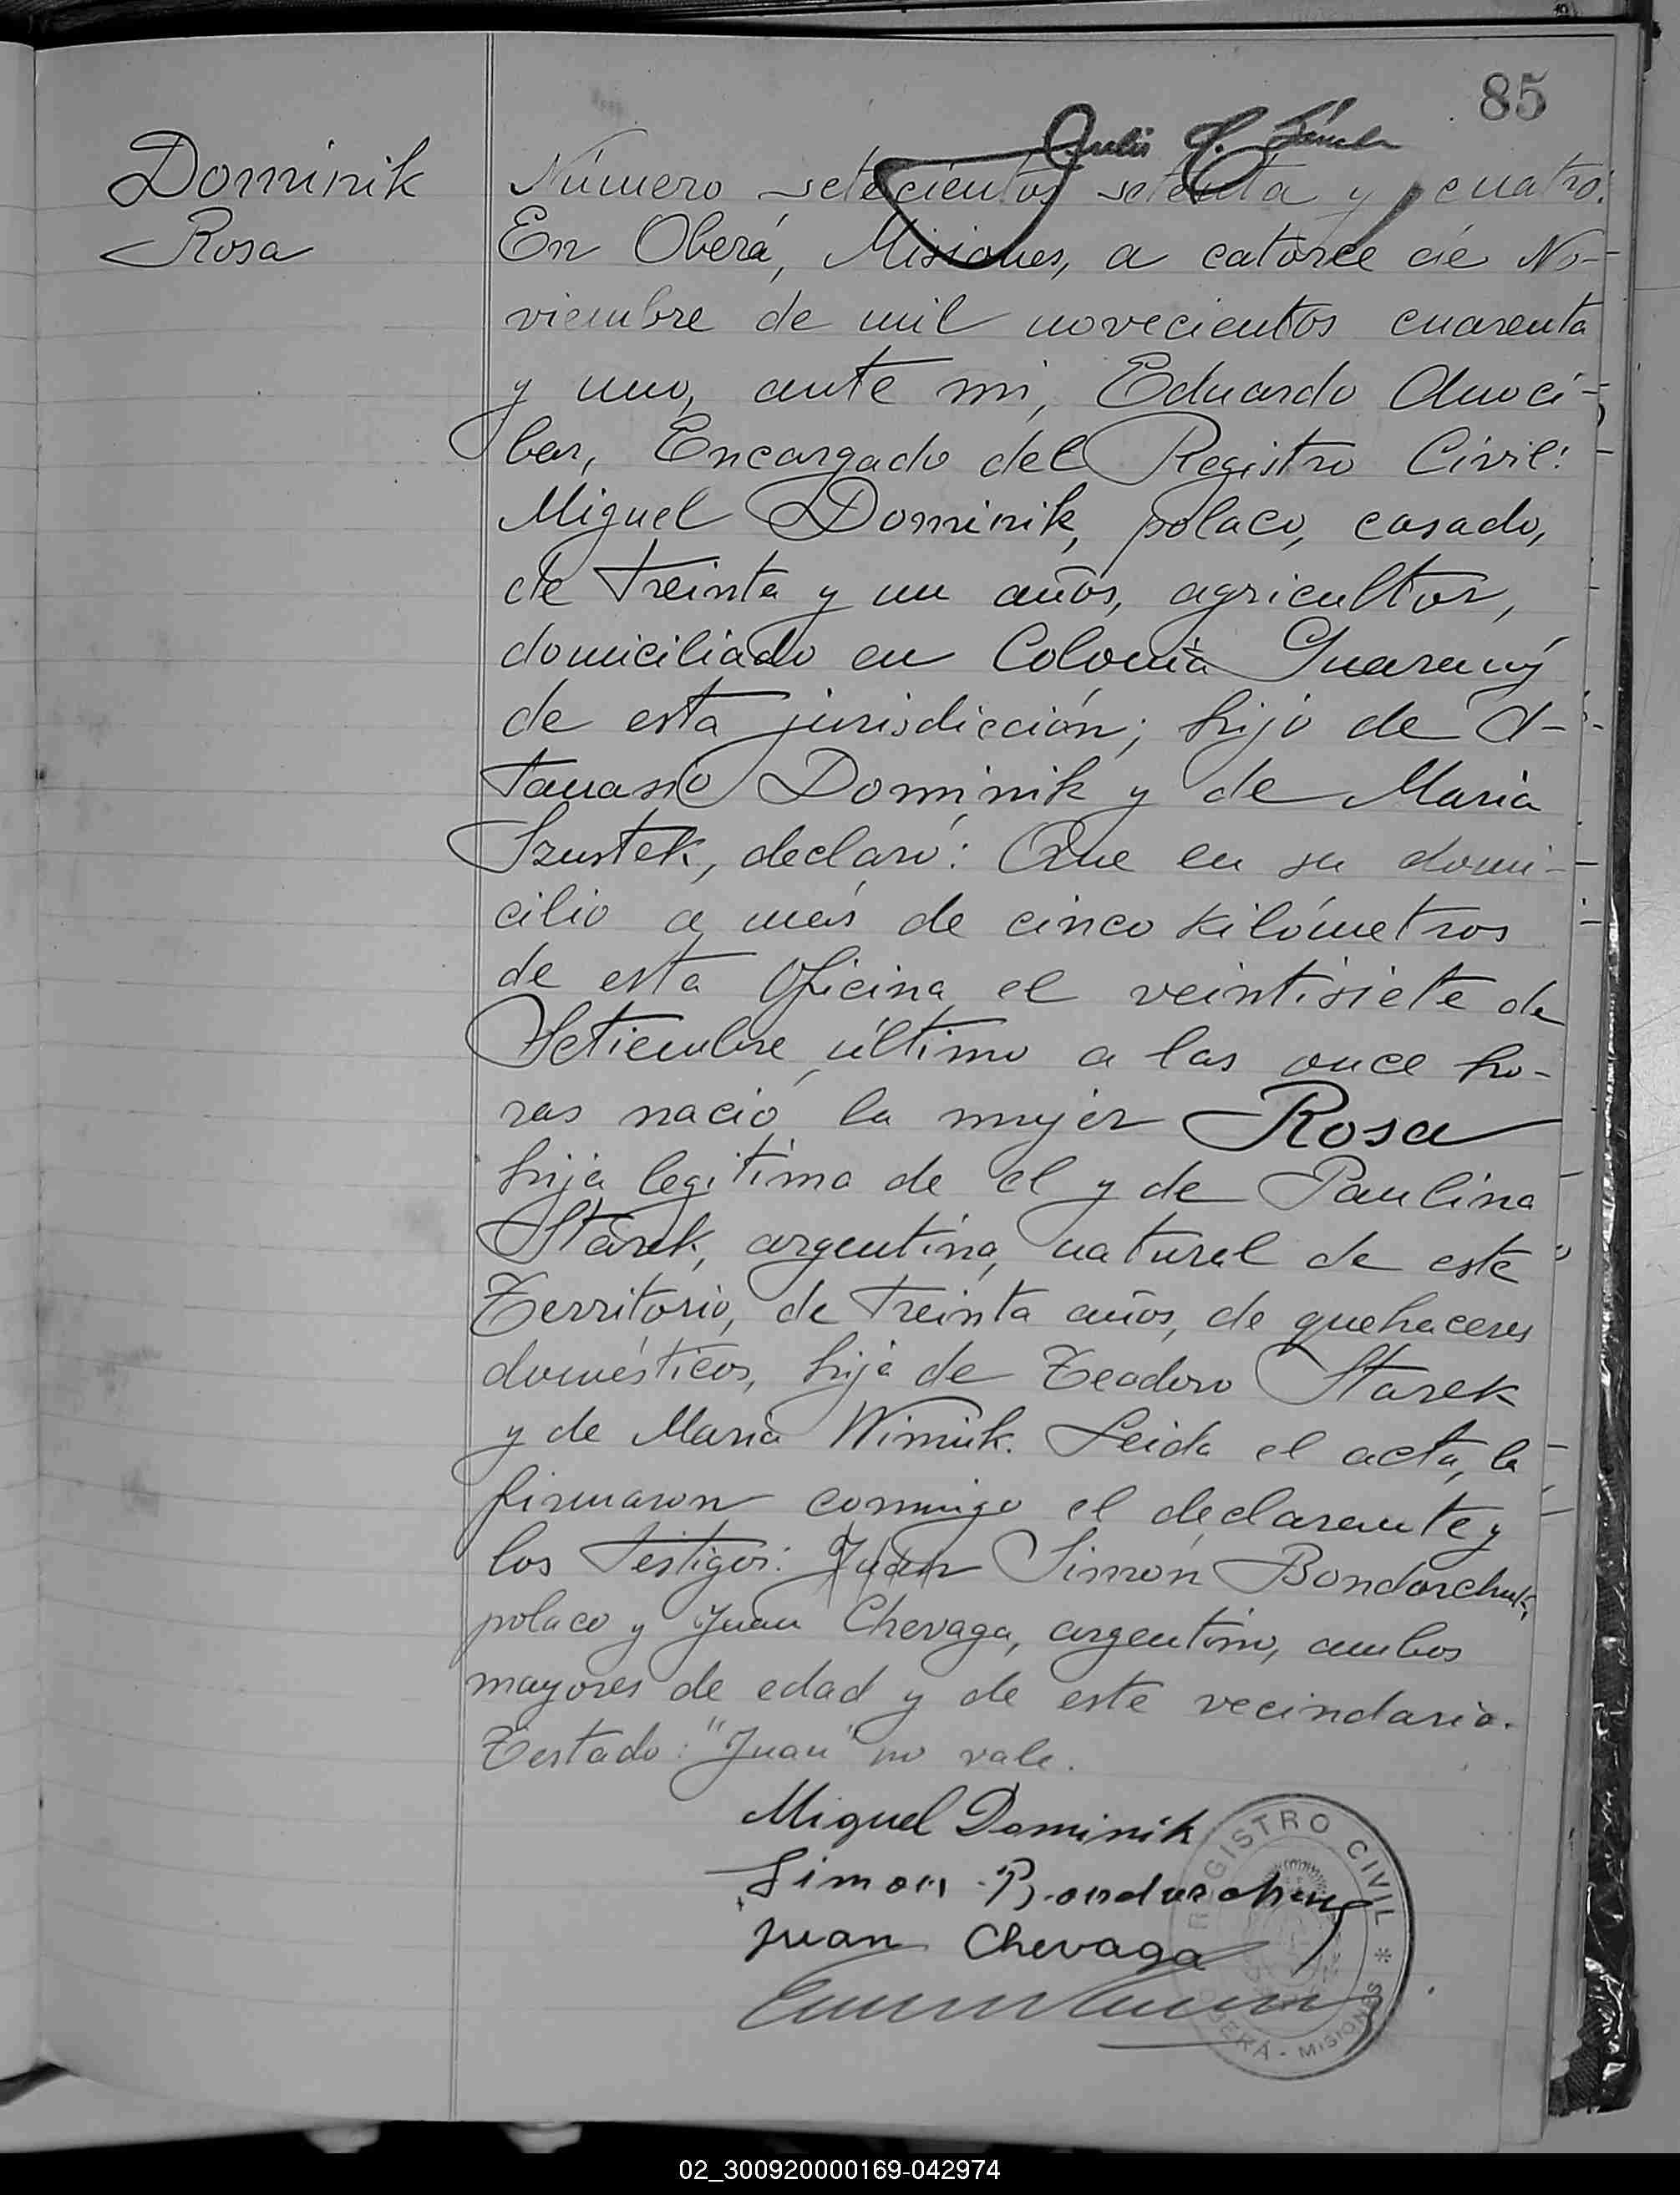 85
Dominik
Rosa
Número setecientos setenta y cuatro.
En Oberá, Misiones, a catorce de No-
viembre de mil novecientos cuarenta
y uno, ante mi, Eduardo Anoci-
bar, Encargado del Registro Civil:
Miguel Dominik, polaco, casado,
de treinta y un años, agricultor,
domiciliado en Colonia Guaraný
de esta jurisdicción; hijo de A-
tanasio Dominik y de Maria
Szustek, declaró: Que en su domi-
cilio a más de cinco kilómetros
de esta Oficina el veintisiete de
Setiembre último a las once ho-
ras nació la mujer Rosa
hija legitima de el y de Paulina
Starek, argentina, natural de este
Territorio, de treinta años, de quehaceres
domésticos, hija de Teodoro Starek
y de Maria Winnik. Leida el acta, la
firmaron conmigo el declarante y
los testigos: Juan Simón Bondarchuk,
polaco y Juan Chevaga, argentino, ambos
mayores de edad y de este vecindario.
Testado: "Juan" no vale.
Miguel Dominik
Simon Bondarchuk
Juan Chevaga
REGISTRO CIVIL *
OBERÁ - MISIONES
02_300920000169-042974